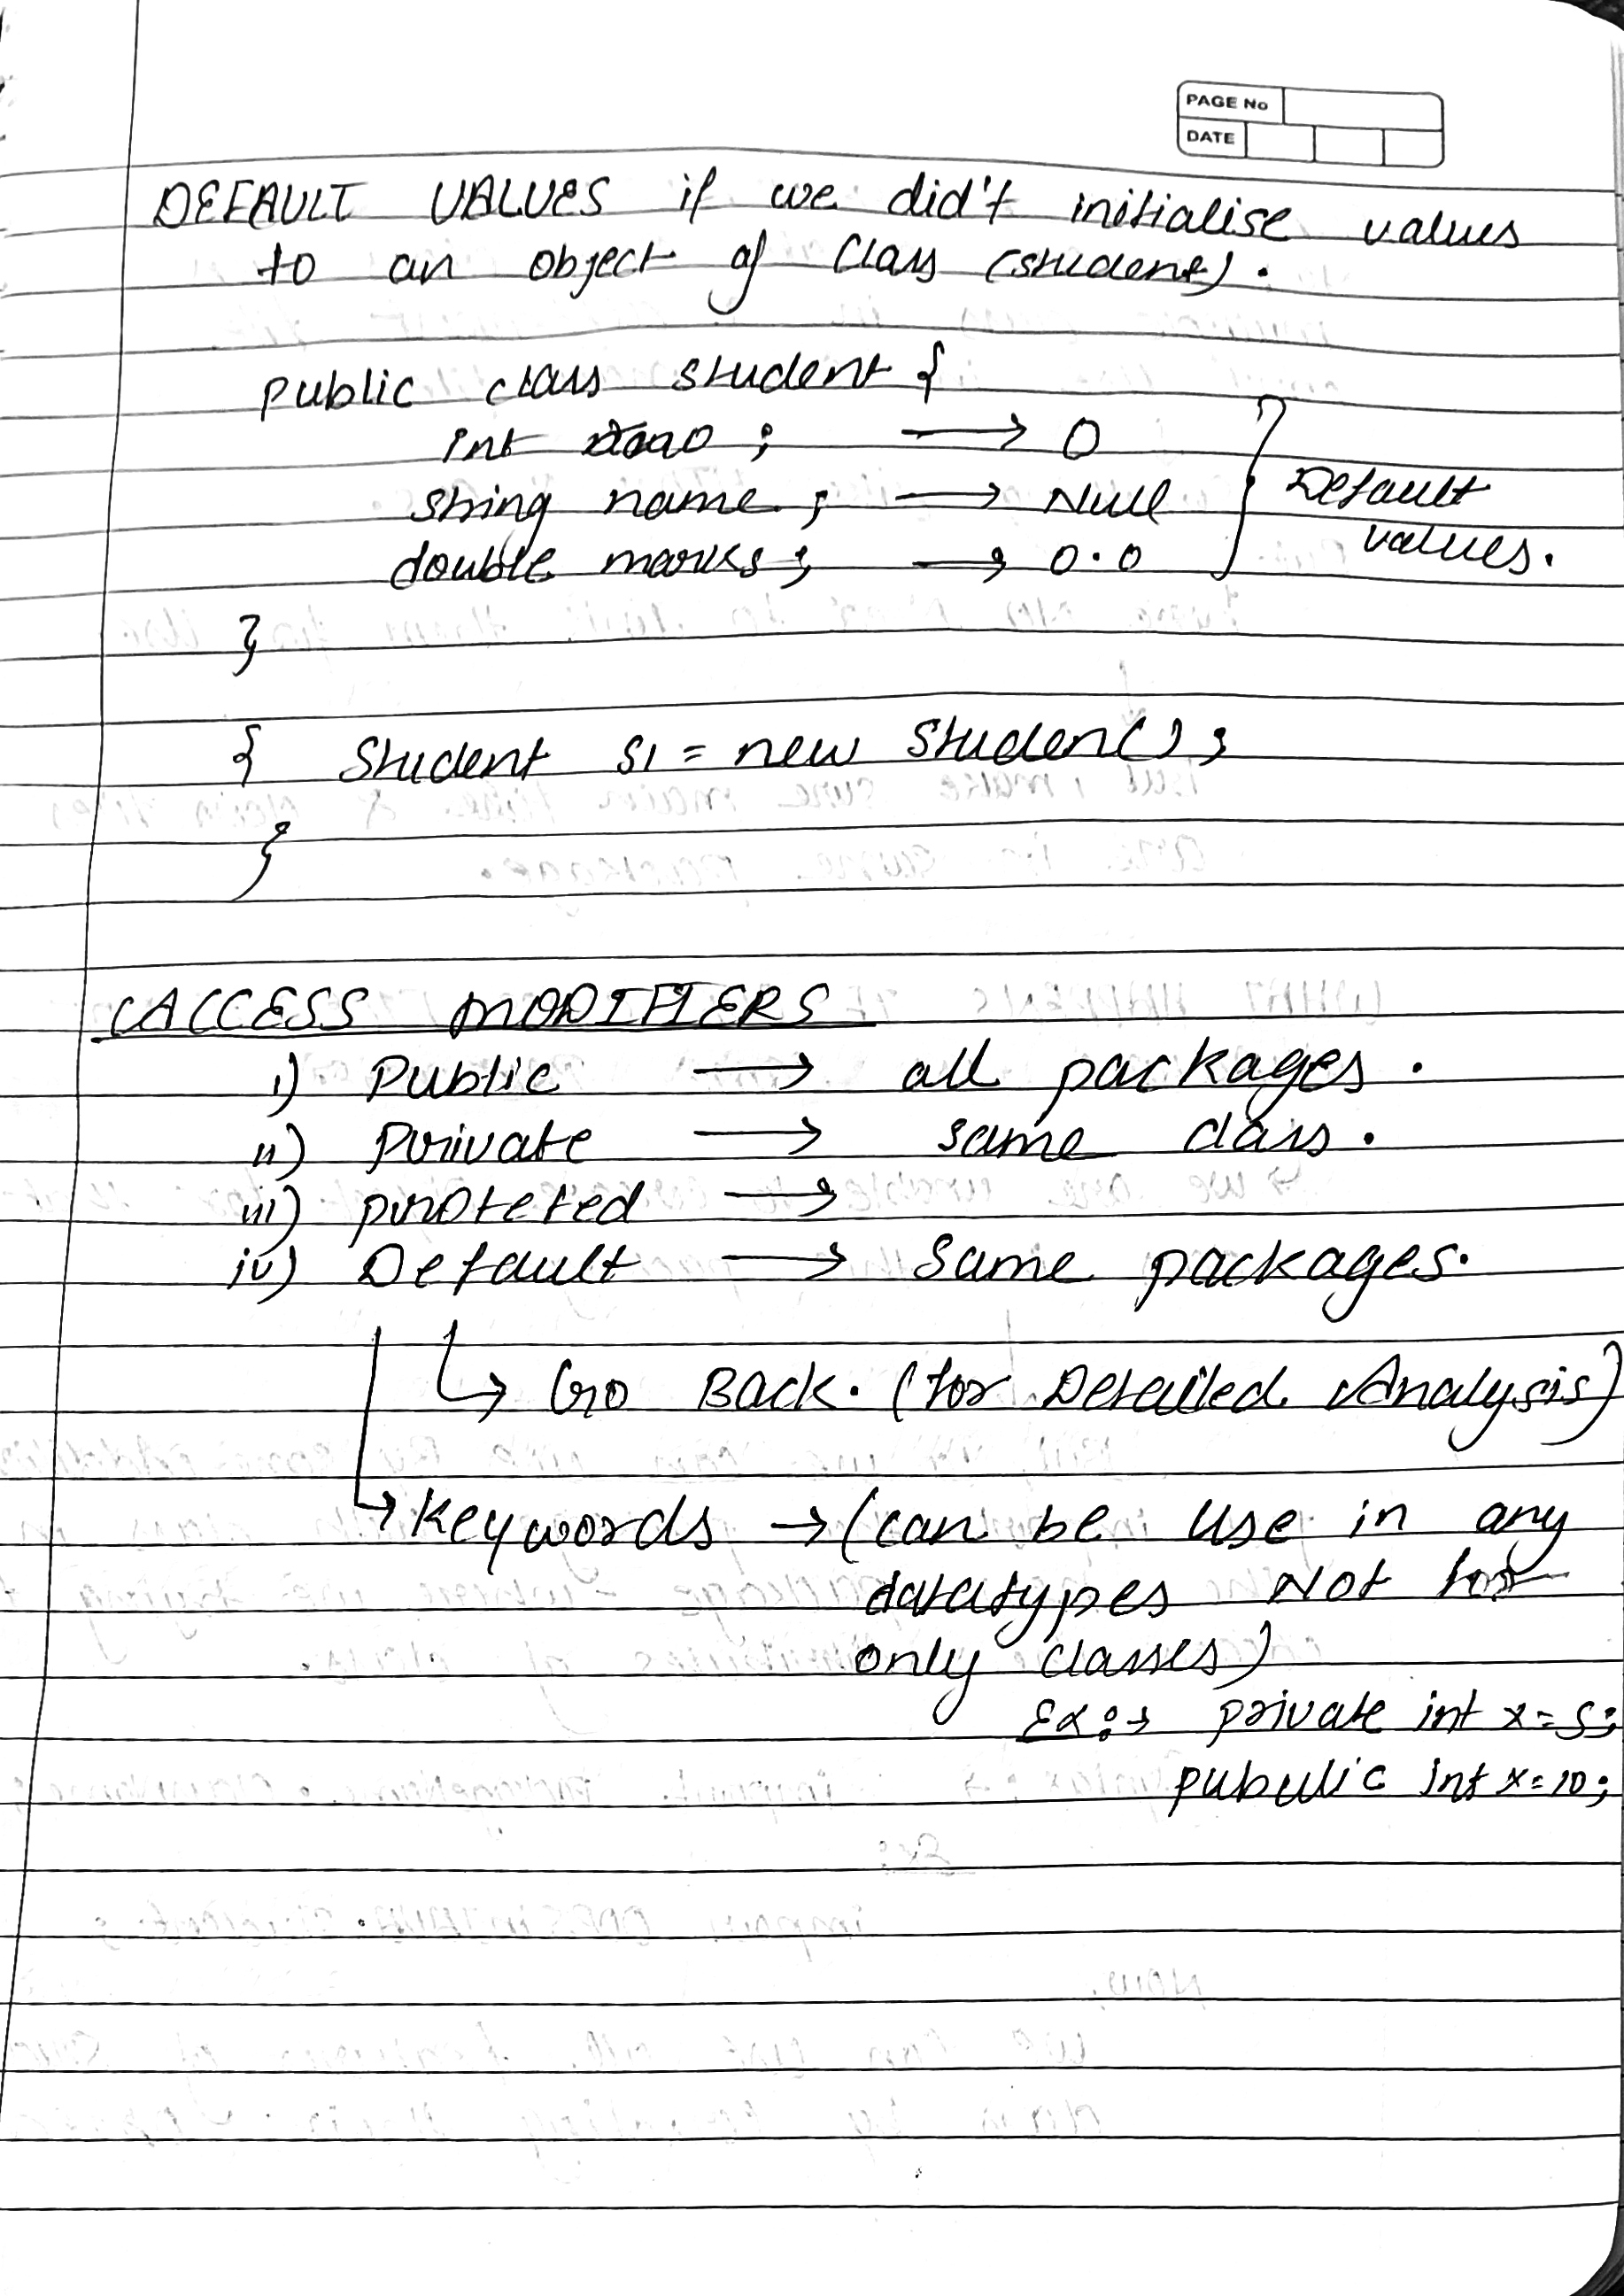 PAGE No
DATE
DEFAULT VALUES if we did't initialise values
to an object of Class (student).
public class student {
int ; → 0
string name ; → Null
double marks ; → 0.0
} Default
values.
}
{ Student s1 = new Studen();
}
ACCESS MODIFIERS
i) Public → all packages.
ii) Private → same class.
iii) proteted →
iv) Default → Same packages.
↳ Go Back. (for Detailed Analysis)
↳ Keywords → (can be use in any
datatypes Not for
only classes)
Ex:→ private int x=5;
pubulic int x=10;